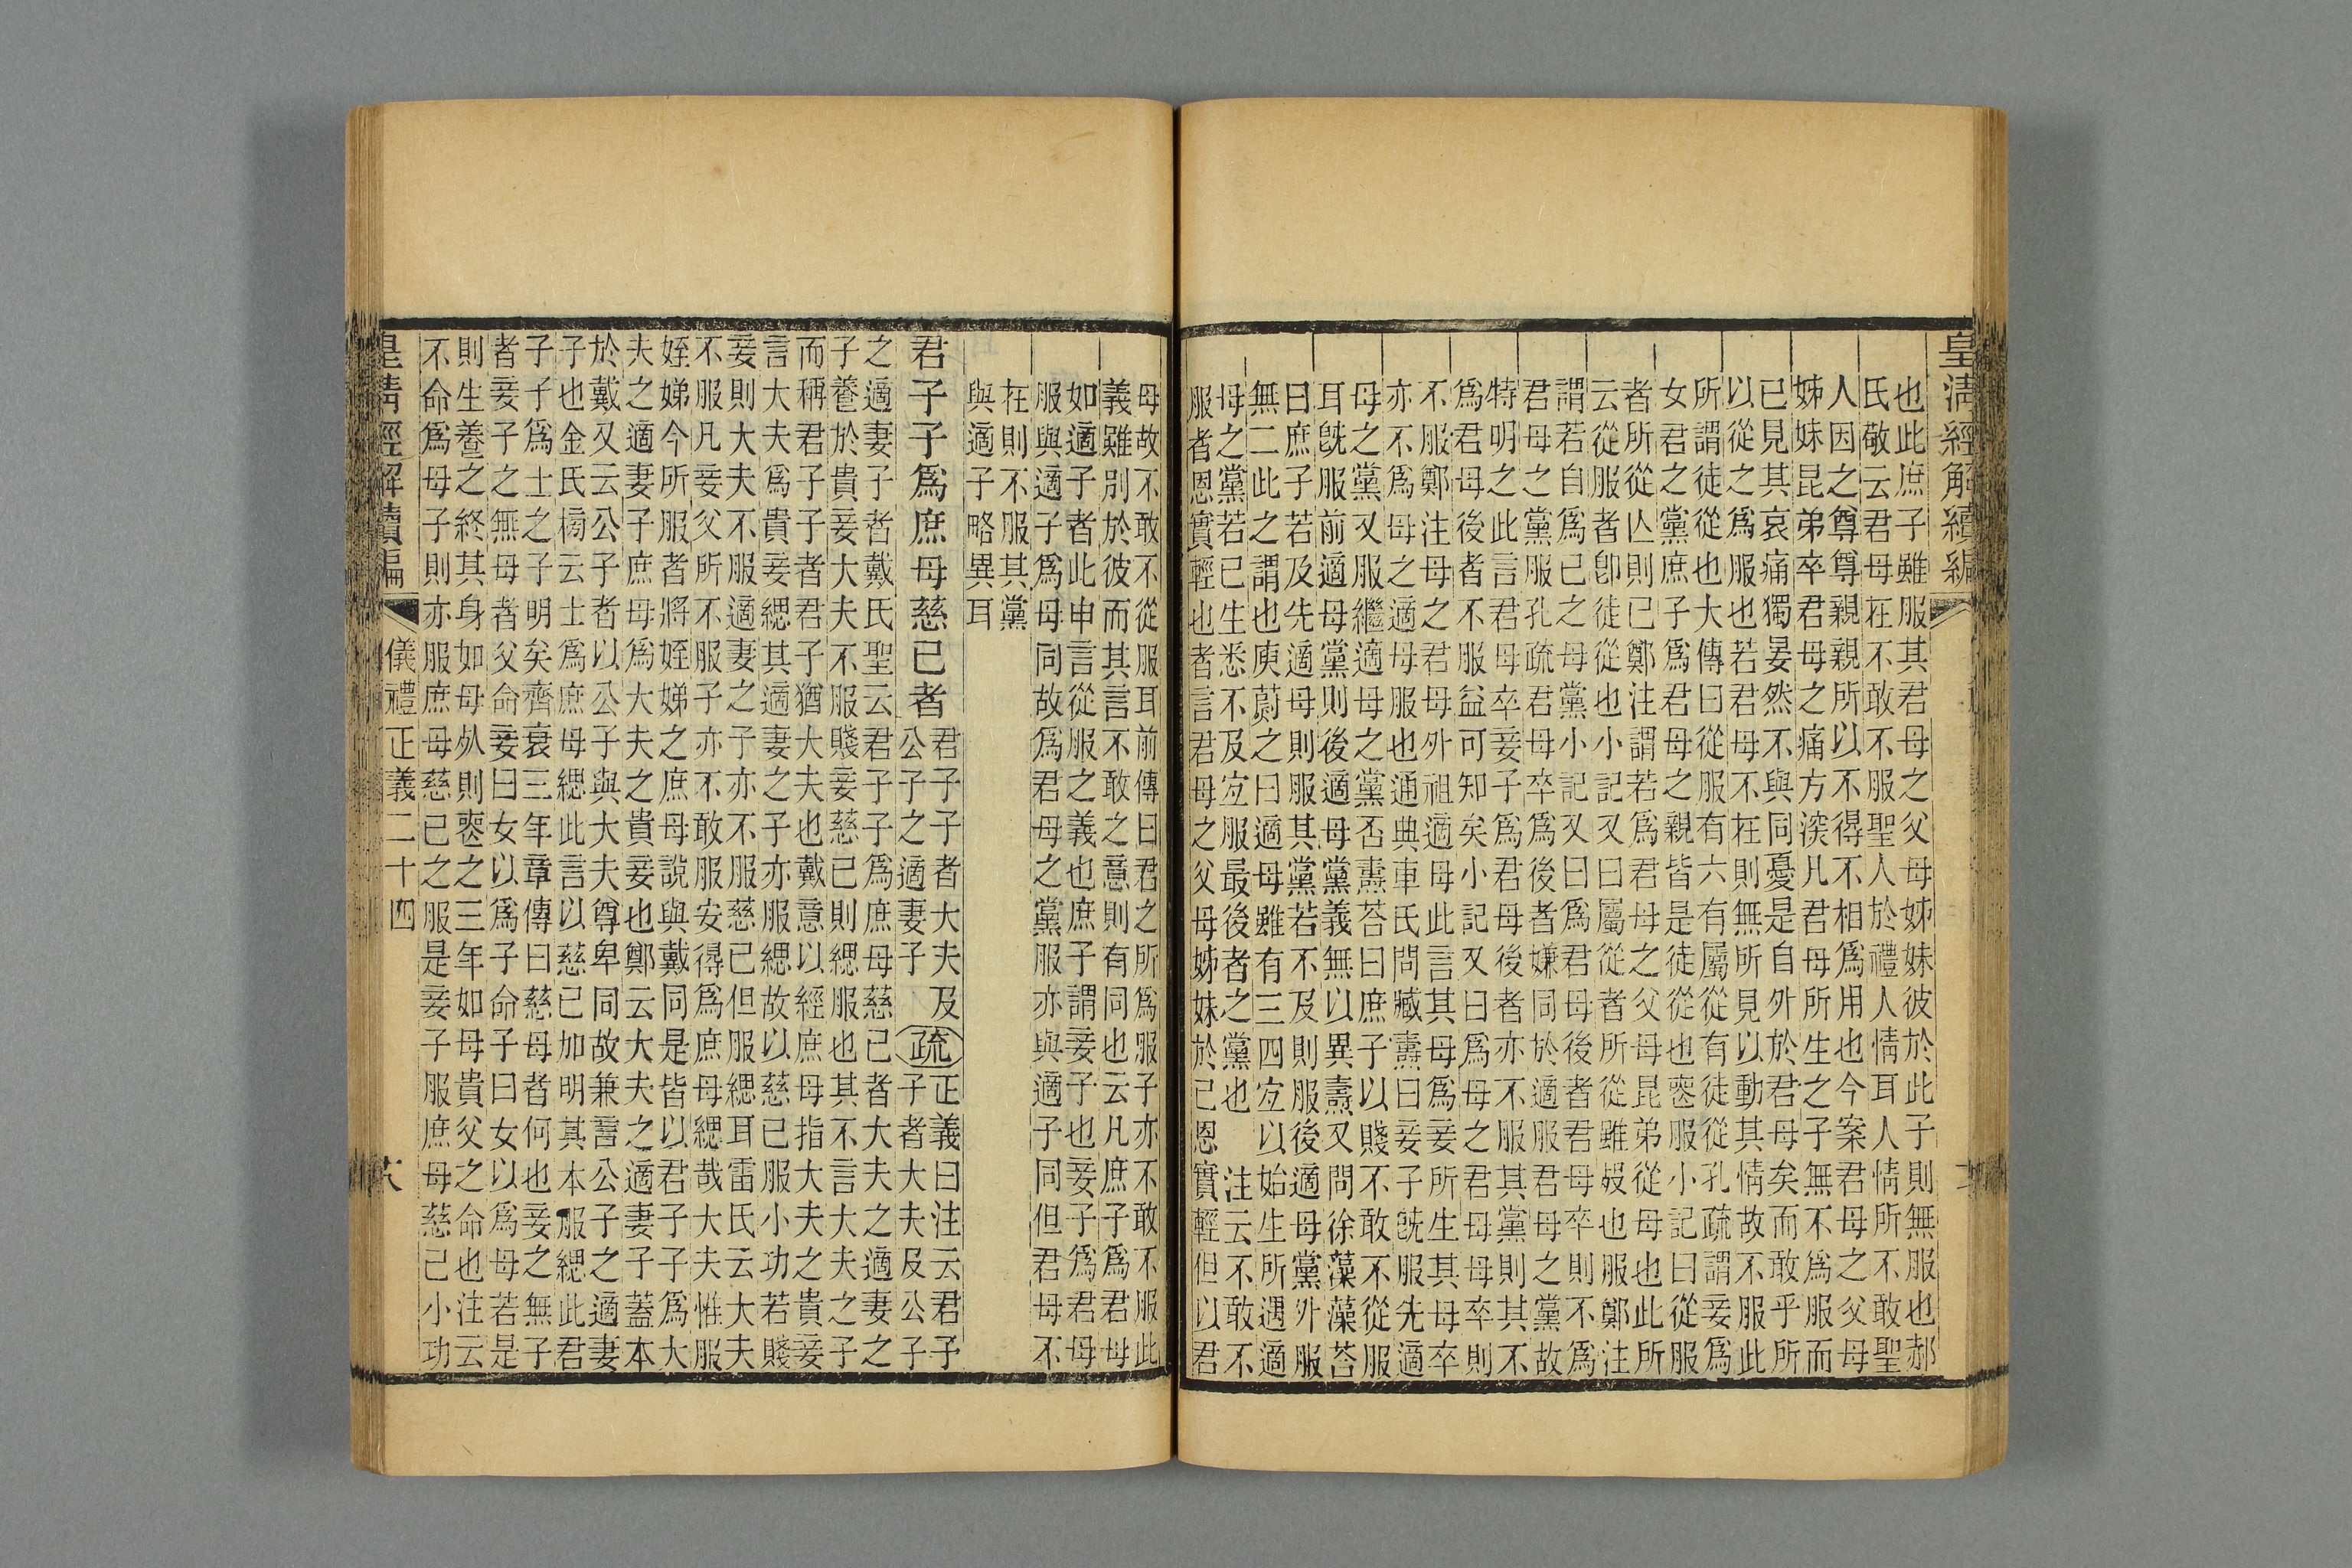 皇清經解續編
也此庶子雖服其君母之父母姊妹彼於此子則無服也郝
氏敬云君母在不敢不服聖人於禮人情耳人情所不敢聖
人因之尊尊親親所以不得不相爲用也今案君母之父母
姊妹昆弟卒君母之痛方深凡君母所生之子無不爲服而
已見其哀痛獨晏然不與同憂是自外於君母矣而敢乎所
以從之爲服也若君母不在則無所見以動其情故不服此
所謂徒從也大傳曰從服有六有屬從有徒從孔疏謂妾爲
女君之黨庶子爲君母之親皆是徒從也喪服小記曰從服
者所從亾則已鄭注謂若爲君母之父母昆弟從母也此所
云從服者卽徒從也小記又曰屬從者所從雖歿也服鄭注
謂若自爲己之母黨小記又曰爲君母後者君母卒則不爲
君母之黨服孔疏君母卒爲後者嫌同於適服君母之黨故
特明之此言君母卒妾子爲君母後者亦不服其黨則其不
爲君母後者不服益可知矣小記又曰爲母之君母母卒則
不服鄭注母之君母外祖適母此言其母爲妾所生其母卒
亦不爲母之適母服也通典車氏問臧燾曰妾子旣服先適
母之黨又服繼適母之黨否燾荅曰庶子以賤不敢不從服
耳旣服前適母黨則後適母黨義無以異燾又問徐藻藻荅
曰庶子若及先適母則服其黨若不及則服後適母黨外服
無二此之謂也庾蔚之曰適母雖有三四宐以始生所遇適
母之黨若已生悉不及宐服最後者之黨也　注云不敢不
服者恩實輕也者言君母之父母姊妹於己恩實輕但以君
母故不敢不從服耳前傳曰君之所爲服子亦不敢不服此
義雖別於彼而其言不敢之意則有同也云凡庶子爲君母
如適子者此申言從服之義也庶子謂妾子也妾子爲君母
服與適子爲母同故爲君母之黨服亦與適子同但君母不
在則不服其黨
與適子略異耳
君子子爲庶母慈己者
君子子者大夫及
公子之適妻子
疏
正義曰注云君子
子者大夫及公子
之適妻子者戴氏聖云君子子爲庶母慈己者大夫之適妻之
子養於貴妾大夫不服賤妾慈己則緦服也其不言大夫之子
而稱君子子者君子猶大夫也戴意以經庶母指大夫之貴妾
言大夫爲貴妾緦其適妻之子亦服緦故以慈己服小功若賤
妾則大夫不服適妻之子亦不服慈己但服緦耳雷氏云大夫
不服凡妾父所不服子亦不敢服安得爲庶母緦哉大夫惟服
姪娣今所服者將姪娣之庶母說與戴同是皆以君子子爲大
夫之適妻子庶母爲大夫之貴妾也鄭云大夫之適妻子蓋本
於戴又云公子者以公子與大夫尊卑同故兼言公子之適妻
子也金氏榜云士爲庶母緦此言以慈己加明其本服緦此君
子子爲士之子明矣齊衰三年章傳曰慈母者何也妾之無子
者妾子之無母者父命妾曰女以爲子命子曰女以爲母若是
則生養之終其身如母死則喪之三年如母貴父之命也注云
不命爲母子則亦服庶母慈己之服是妾子服庶母慈己小功
皇清經解續編
儀禮正義二十四